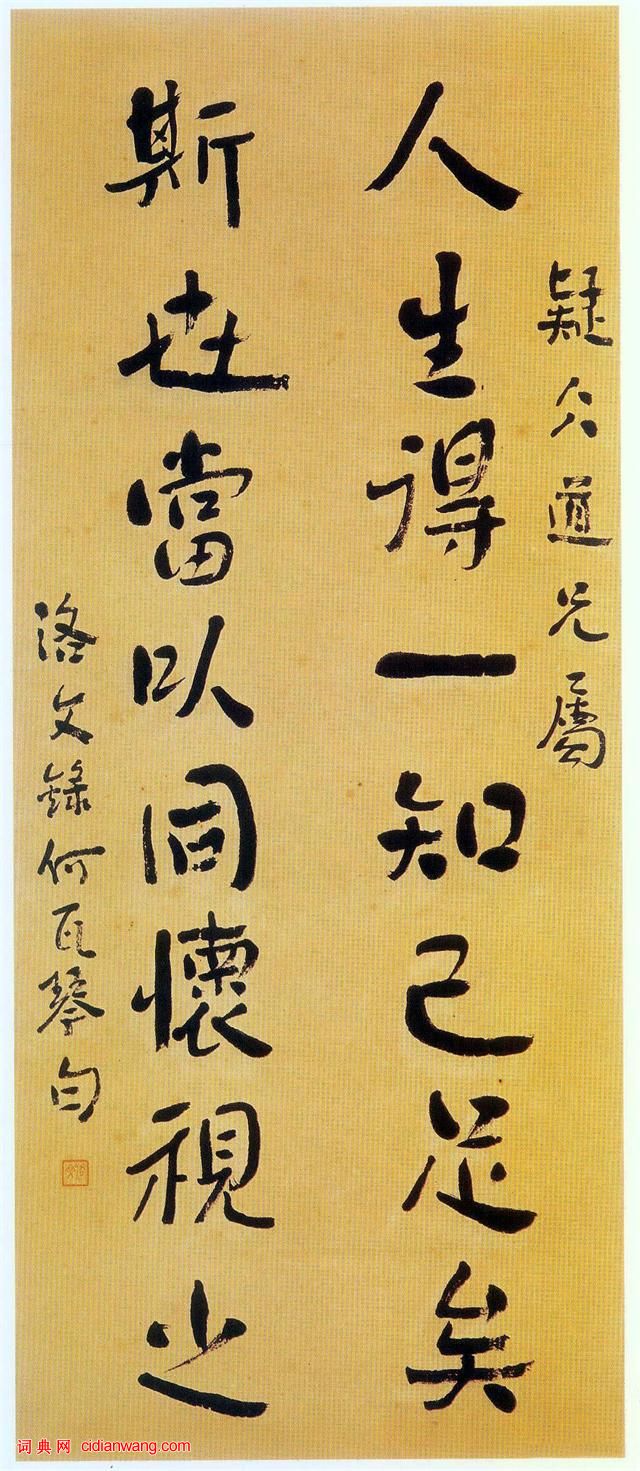 疑仌道兄屬
人生得一知己足矣
斯世當以同懷視之
洛文錄何瓦琴句
词典网 cidianwang.com